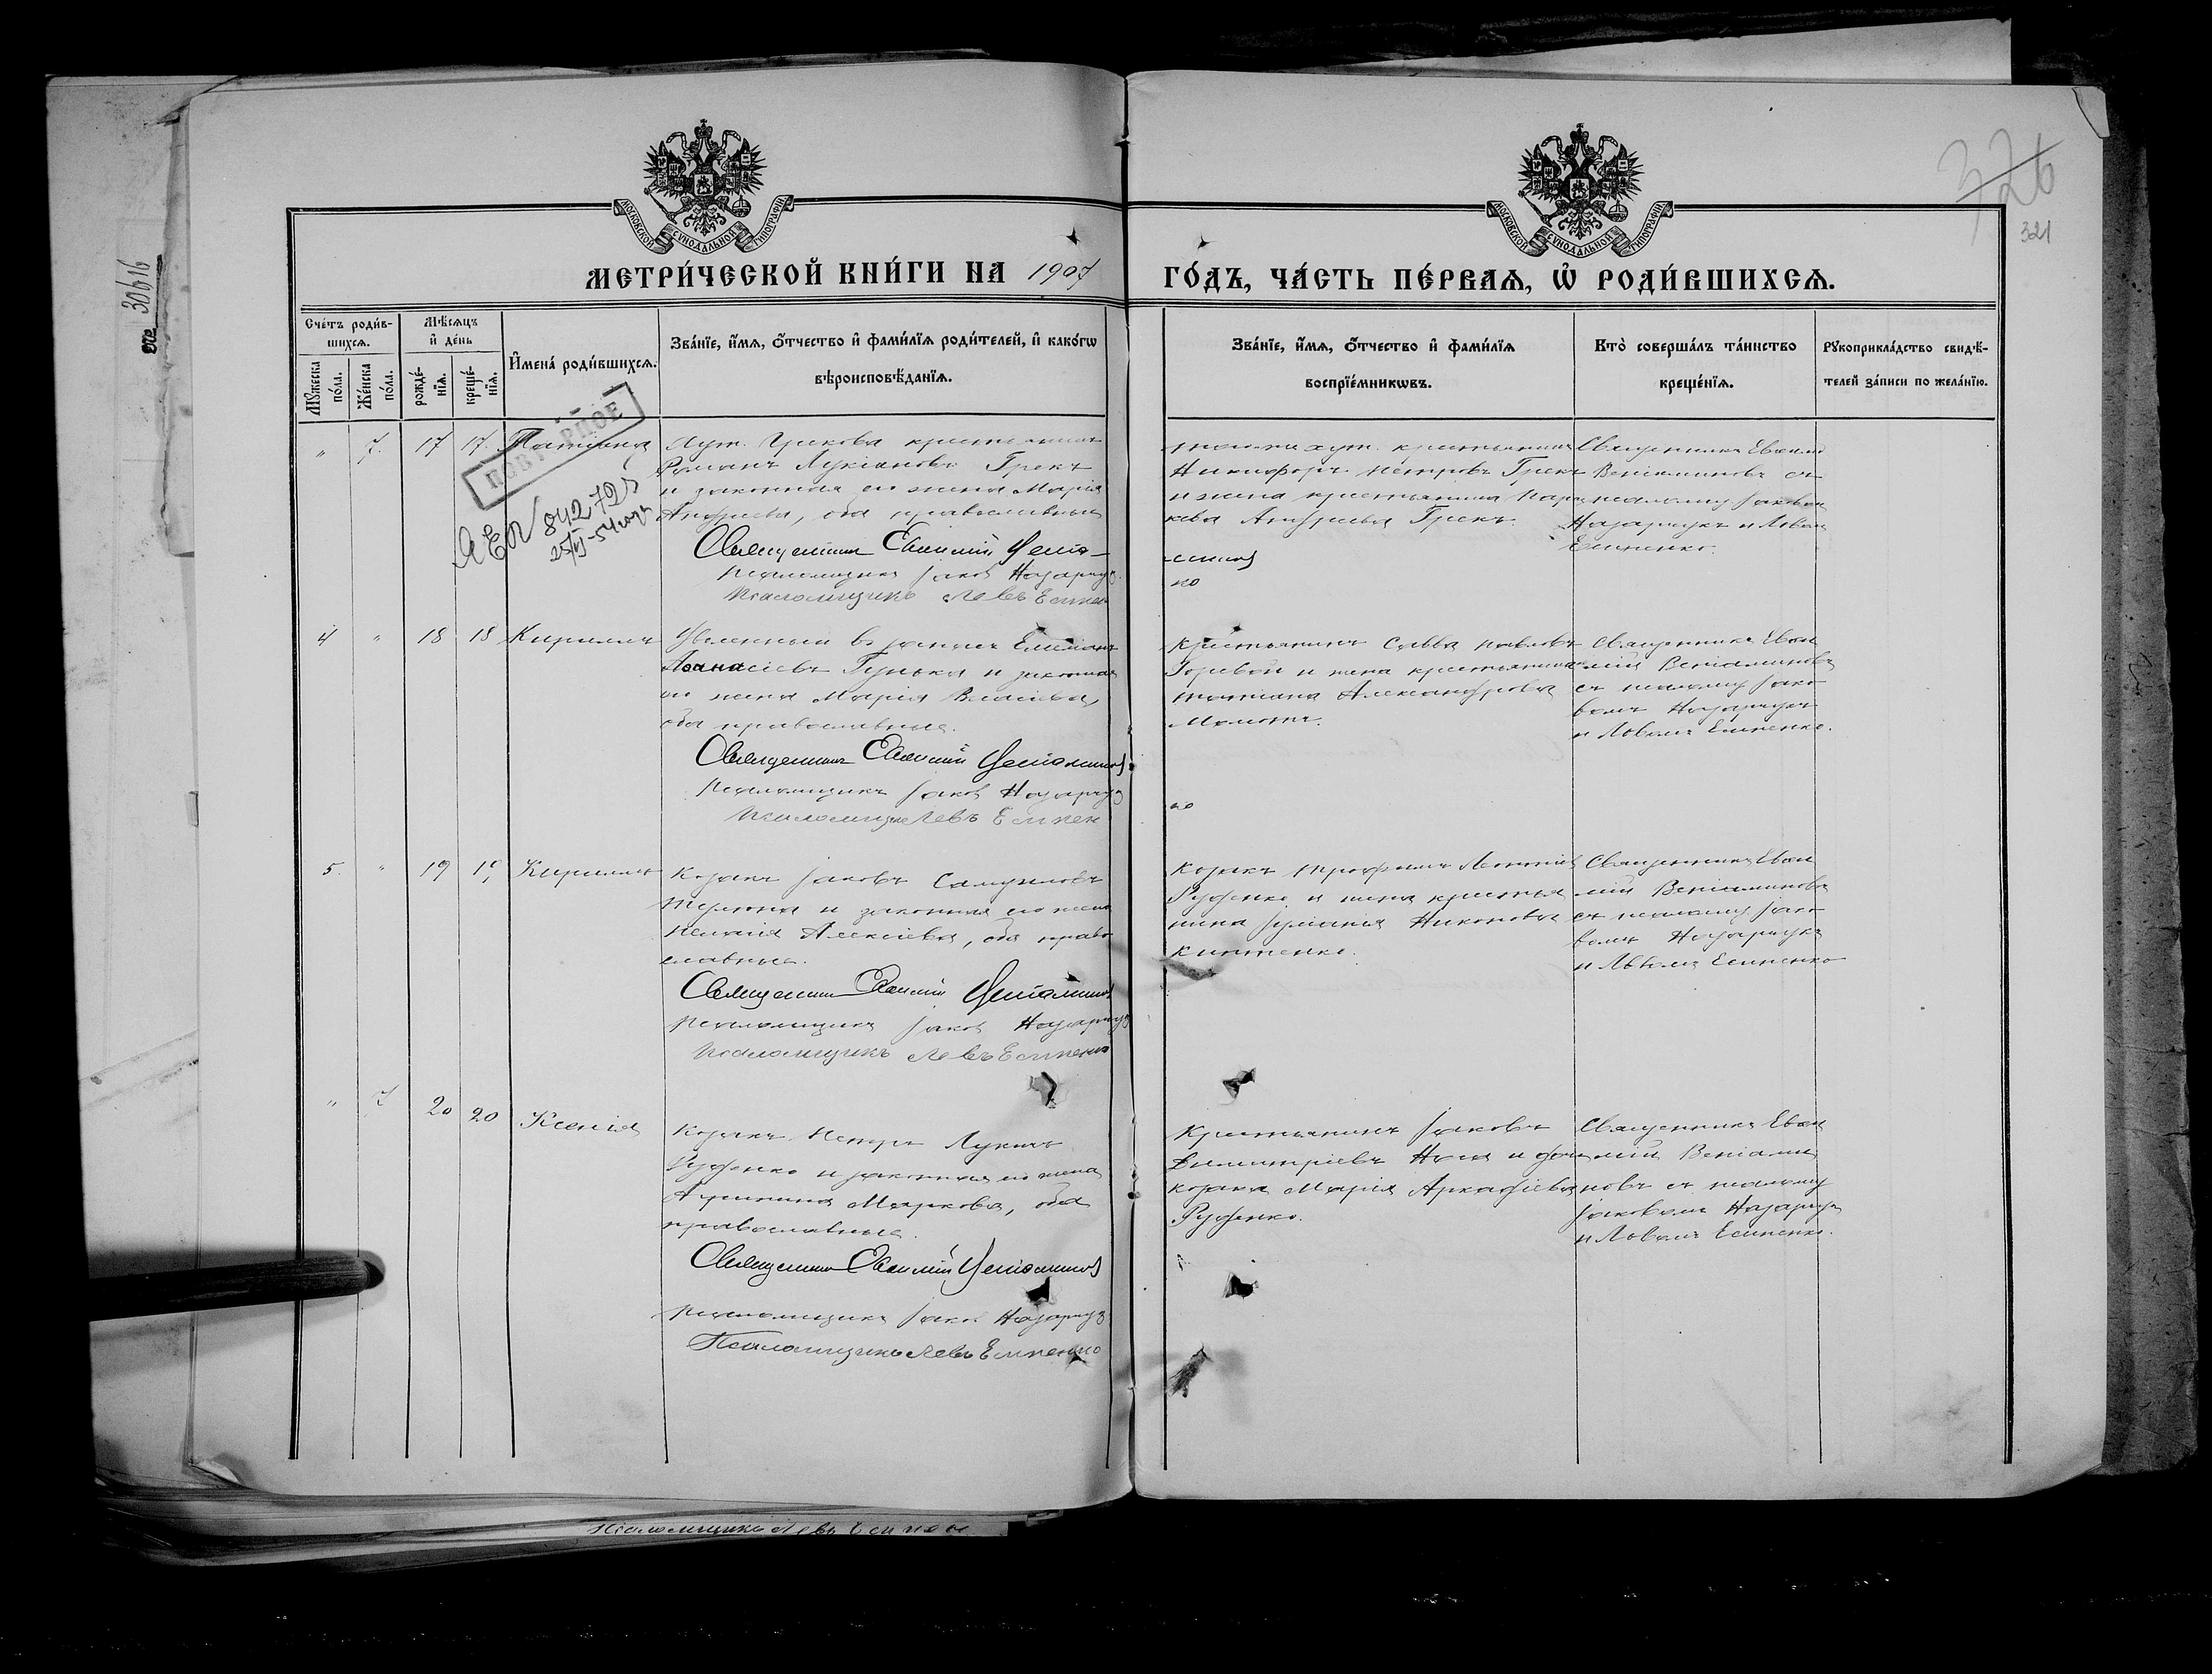 326
321
30616
МОСКОВСКОЙ СУНОДАЛЬНОЙ ТИПОГРАФІИ
МОСКОВСКОЙ СУНОДАЛЬНОЙ ТИПОГРАФІИ
МЕТРИ́ЧЕСКОЙ КНИ́ГИ НА 1907 ГО́ДЪ, ЧА́СТЬ ПЕ́РВАЯ, Ѡ РОДИ́ВШИХСЯ.
Сче́тъ роди́в-
шихся.
Мꙋжеска по́ла.
Же́нска по́ла.
Мѣсяцъ и де́нь
рожде́-нїя.
креще́-нїя.
Имена́ роди́вшихся.
Зва́нїе, и́мя, о́тчество и фами́лїя роди́телей, и како́гѡ
вѣроисповѣ́данїя.
Зва́нїе, и́мя, о́тчество и фами́лїя
воспрїе́мникѡвъ.
Кто̀ соверша́лъ та́инство
креще́нїя.
Рꙋкоприкла́дство свидѣ́-
телей за́писи по жела́нїю.
" 7. 17 17. Татіана
ПОВТОРНОЕ
25/VI-54 года
Хут. Грекова крестьянинъ
Романъ Лукіановъ Грекъ
и законная его жена Марія
Андреева, оба православные
Священникъ Евѳимій Веніа-
Псаломщикъ Іаковъ Назарчук
Псаломщикъ Левъ Есипен
того-же хут. крестьянинъ
Никифоръ Петровъ Грекъ
и жена крестьянина Пара
кева Андреева Грекъ
миновъ
ко
Священникъ Евѳимій
Веніаминовъ съ
псаломщ. Іаковом
Назарчукъ и Львом
Есипенко.
4 " 18 18 Кириллъ
Уволенный въ запасъ Емеліанъ
Аѳанасіевъ Гунька и законная
его жена Марія Власіева,
оба православные.
Священникъ Евѳимій Веніаминовъ
Псаломщикъ Іаковъ Назарчук
Псаломщик Левъ Есипен
Крестьянинъ Савва Павловъ
Горевой и жена крестьянина
Татіана Александрова
Мамотъ.
ко
Священникъ Евѳи
мій Веніаминовъ
съ псаломщ. Іако
вомъ Назарчукъ
и Львомъ Есипенко.
5. " 19 19 Кириллъ
Козакъ Іаковъ Самуиловъ
и законная его жена
Пелагія Алексіева, оба право
славные.
Священникъ Евѳимій Веніаминовъ
Псаломщикъ Іаковъ Назарчук
Псаломщикъ Левъ Есипенко
Козакъ Трофимъ Леонтіев
Руденко и жена крестья
нина Іуліанія Никонова
Священникъ Евѳи
мій Веніаминовъ
съ псаломщ. Іако
вомъ Назарчукъ
и Львомъ Есипенко
" 7 20 20 Ксенія
Козакъ Петръ Лукинъ
Руденко и законная его жена
Агрипина Маркова, оба
православные.
Священникъ Евѳимій Веніаминовъ
Псаломщикъ Іаковъ Назарчук
Псаломщикъ Левъ Есипенко
Крестьянинъ Іаковъ
Димитріевъ и дочь
козака Марія Аркадіева
Руденко.
Священникъ Евѳи
мій Веніами
новъ съ псаломщ
Іаковомъ Назарчук
и Львомъ Есипенко.
Псаломщикъ Левъ Есипен